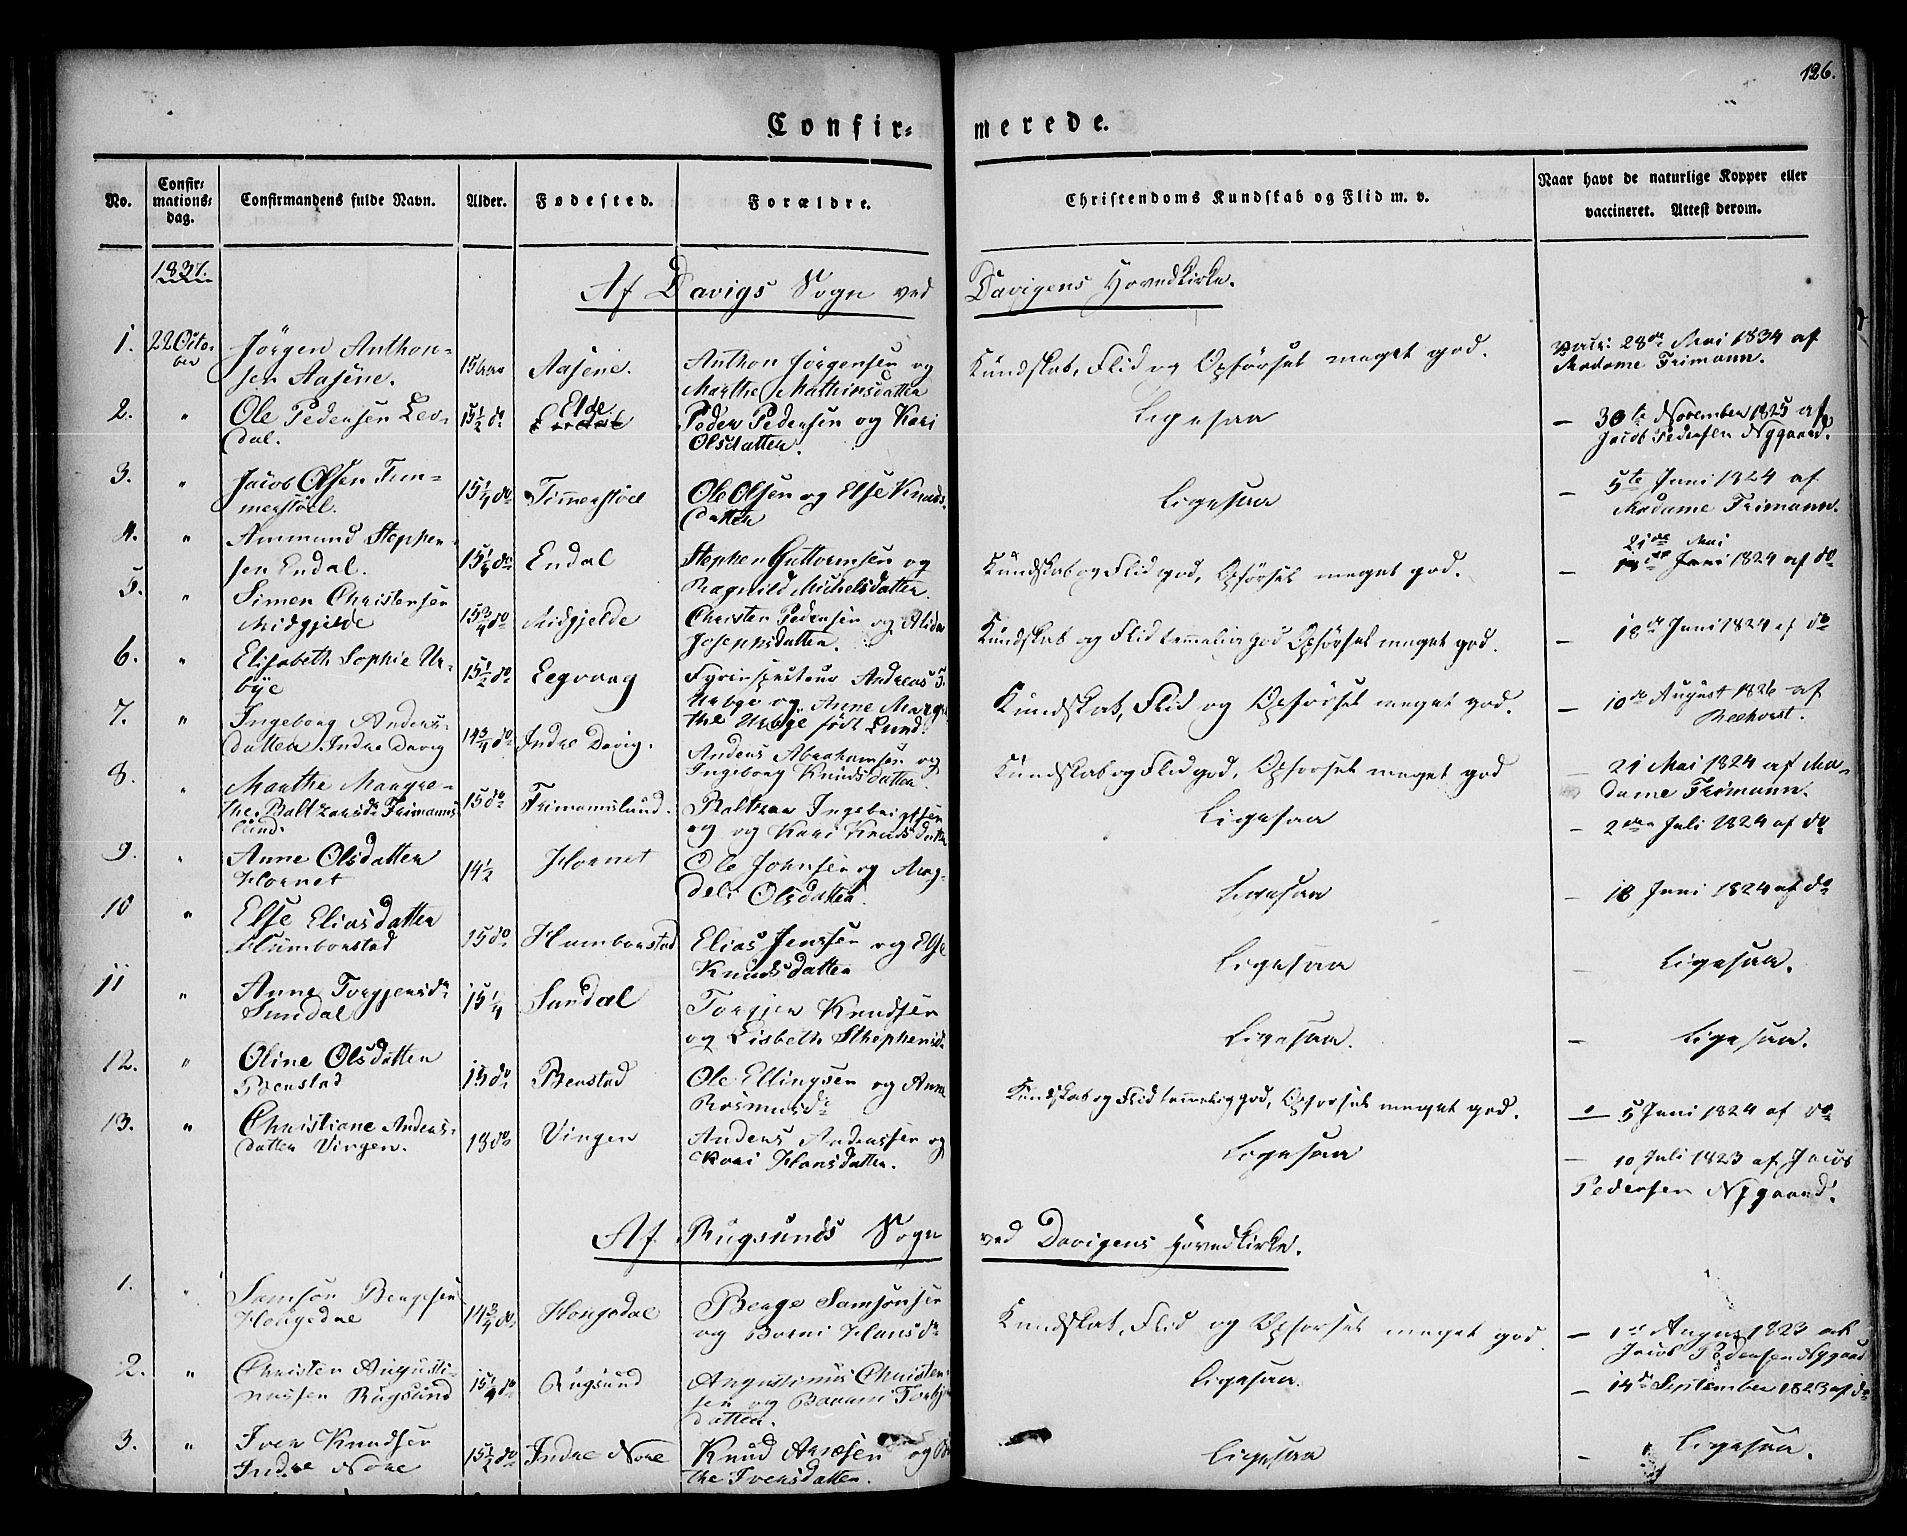 126.
Confir= merede.
No.
Confir=
mations=
dag.
Confirmandens fulde Navn.
Alder.
Fødested.
Forældre.
Christendoms Kundskab og Flid m. v.
Naar havt de naturlige Kopper eller
vaccineret. Attest derom.
1837.
Af Davigs Sogn ved Davigens Hovedkirke.
1. 22 Octo-
ber
Jørgen Anthon-
sen Aaséne.
15 Aar
Aaséne.
Anthon Jørgensen og
Marthe Mathiasdatter
Kundskab, Flid og Opførsel meget god.
28de Mai 1834 af
Madame Frimann.
2. " Ole Pedersen Lev-
dal.
15½ do
Elde
Peder Pedersen og Kari
Olsdatter.
Ligesaa
— 30te November 1825 af
Jacob Pedersen Nygaard.
3. " Jacob Olsen Tim-
merstöel.
15¼ do
Timerstöel
Ole Olsen og Else Knuds-
datter
Ligesaa
— 5te Juni 1824 af
Madame Frimann.
4. " Ammund Stephen-
sen Endal.
15¼ do
Endal
Stephen Guttormsen og
Ragnild Michelsdatter.
Kundskab og Flid god, Opførsel meget god.
21de Mai
— Juni 1824 af do
5. " Simen Christensen
Midgjelde
15¾ do
Midgjelde
Christen Pedersen og Alida
Josephsdatter.
Kundskab og Flid temmelig god Opførsel meget god.
— 18de Juni 1824 af do
6. " Elisabeth Sophie Ur-
bye
15½ do
Eegvaag
Fyrinspecteur Andreas S.
Urbye og Anne Margre-
the Urbye født Lund.
Kundskab, Flid og Opførsel meget god.
— 10de August 1826 af
7. " Ingeborg Anders-
datter Indre Davig
14¾ do
Indre Davig.
Anders Abrahamsen og
Ingeborg Knudsdatter.
Kundskab og Flid god, Opførsel meget god
— 21 Mai 1824 af Ma-
dame Frimann.
8. " Marthe Margre-
the Baltzarsdr Frimanns-
lund.
15 do
Frimannslund.
Balthzar Ingebrigtsen
og og Kari Knudsdatter
Ligesaa
— 2den Juli 1824 af do
9. " Anne Olsdatter
Hornet
14½
Hornet
Ole Johnsen og Mag-
deli Olsdatter.
Ligesaa
— 18 Juni 1824 af do
10 " Else Eliasdatter
Humborstad
15 do
Humborstad
Elias Jenssen og Else
Knudsdatter
Ligesaa
— Ligesaa.
11 " Anne Torgjersdr
Sundal
15¼
Sundal
Torgjer Knudsen
og Lisbeth Sthephensdr
Ligesaa.
— Ligesaa.
12. " Oline Olsdatter
Benstad
15 do
Benstad
Ole Ellingsen og Anne
Rasmusdr
Kundskab og Flid temmelig god, Opførsel meget god.
— 5 Juni 1824 af do
13. " Christiane Anders-
datter Vingen.
15 do
Vingen
Anders Anderssen og
Kari Hansdatter.
Ligesaa
— 10 Juli 1823 af Jacob
Pedersen Nygaard.
Af Rugsunds Sogn ved Davigens Hovedkirke.
1. " Samson Bergesen
Hougsdal
14¾ do
Hougsdal
Berge Samsonsen
og Barni Hansdr
Kundskab, Flid og Opførsel meget god
— 1st August 1823 af
Jacob Pedersen Nygaard
2. " Christen Augusti-
nussen Rugsund
15¼ do
Rugsund
Augustinus Christen-
sen og
datter.
Ligesaa.
— 14de September 1823 af do
3. " Iver Knudsen
Indre Nore
15½ do
Indre Nore
Knud Arnesen og
the Iversdatter.
Ligesaa
— Ligesaa.